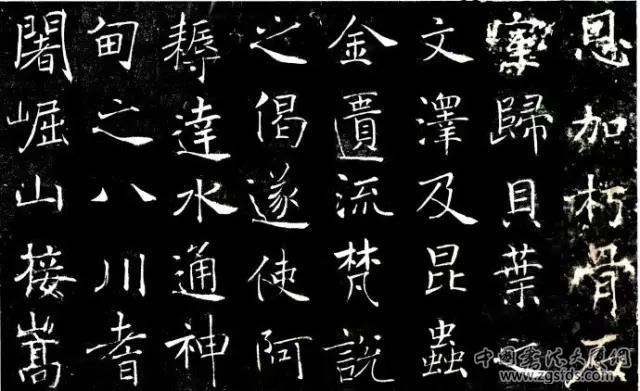 恩加朽骨石
室歸貝葉之
文澤及昆蟲
金匱流梵說
之偈遂使阿
耨達水通神
甸之八川耆
闍崛山接嵩
www.zgsfds.com